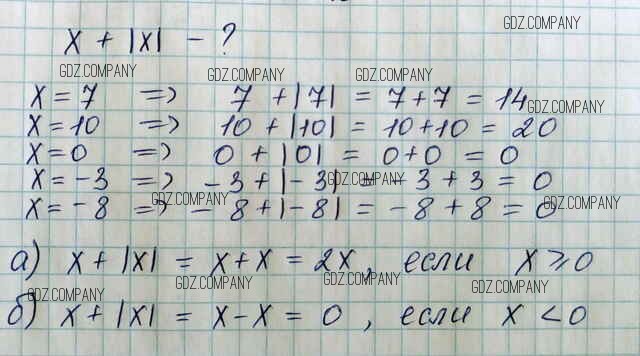 GDZ.COMPANY
x + |x| - ?
GDZ.COMPANY GDZ.COMPANY GDZ.COMPANY
x = 7 => 7 + |7| = 7 + 7 = 14
GDZ.COMPANY
x = 10 => 10 + |10| = 10 + 10 = 20
x = 0 => 0 + |0| = 0 + 0 = 0
x = -3 => -3 + |-3| = -3 + 3 = 0
GDZ.COMPANY
x = -8 => -8 + |-8| = -8 + 8 = 0
GDZ.COMPANY GDZ.COMPANY
а) x + |x| = x + x = 2x, если x ⩾ 0
GDZ.COMPANY GDZ.COMPANY GDZ.COMPANY GDZ.COMPANY
б) x + |x| = x - x = 0, если x < 0